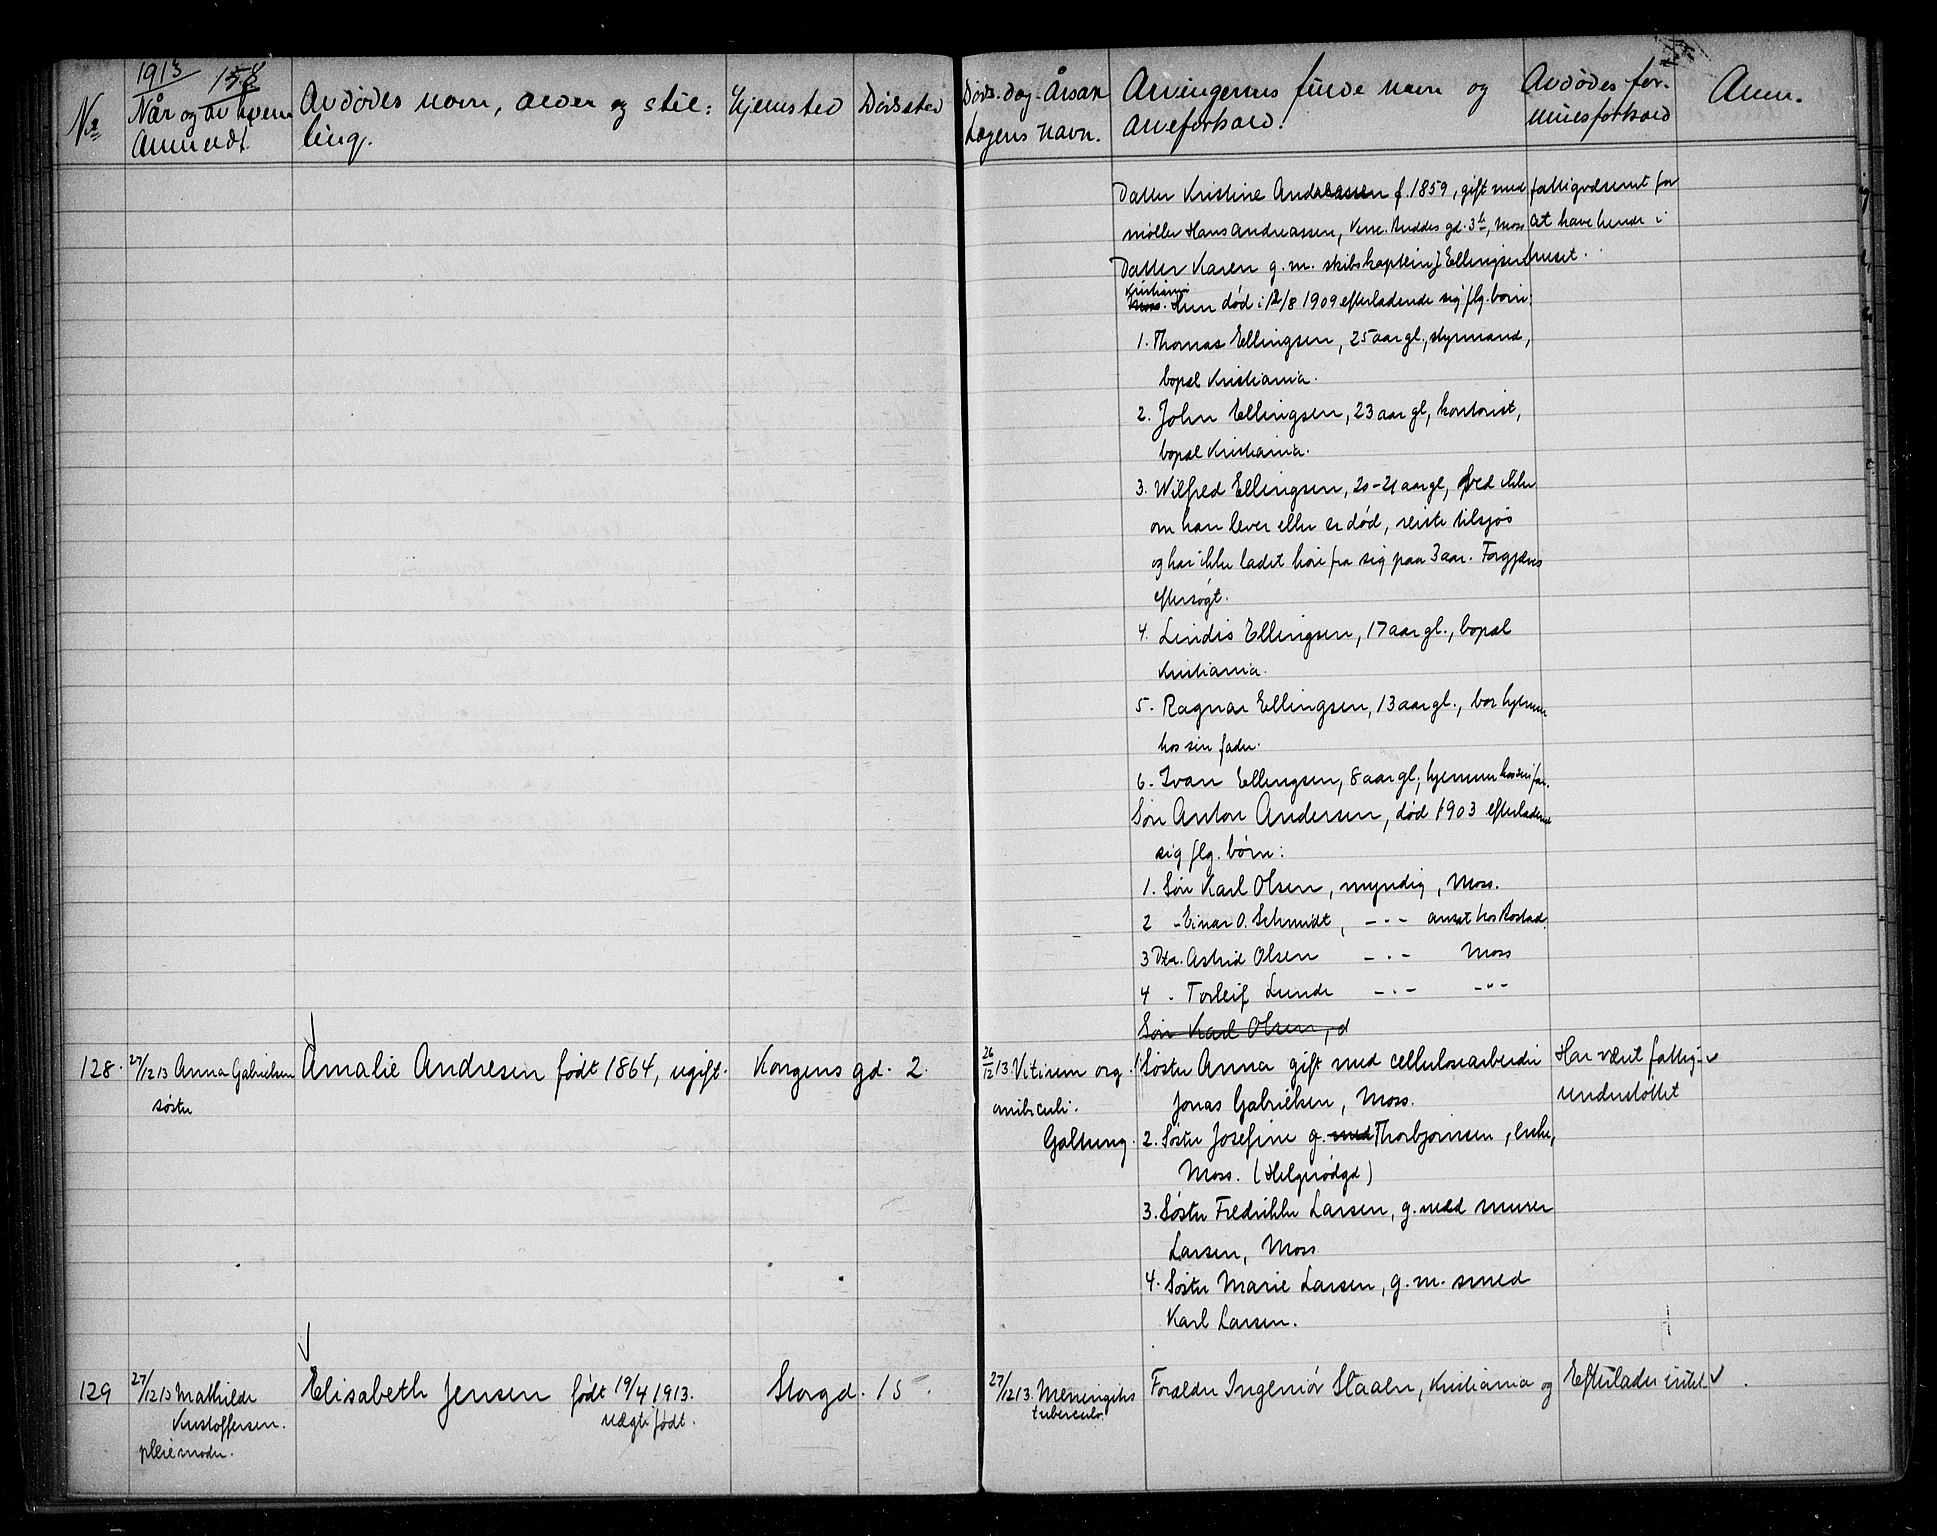 1913
158
No
Når og av hvem
Anmeldt
Avdødes navn, alder og stil-
ling.
Hjemsted
Dødssted
Døds.dag. Årsak
Lægens navn.
Arvingernes fulde navn og
Arveforhold.
Avdødes for-
muesforhold
Anm.
Datter Kristine Andreassen f. 1859, gift med
møller Hans Andreassen, gd. 3b, Moss
Datter Karen g. m. skibskaptein J Ellingsen
Kristiania
Moss. Hun død: 12/8 1909 efterladende sig flg. børn:
fattigvæsenet for
at have hende i
huset.
1. Thomas Ellingsen, 25 aar gl., styrmand,
bopæl Kristiania.
2. John Ellingsen, 23 aar gl, kontorist,
bopæl Kristiania.
3. Wilfred Ellingsen, 20-21 aar gl, ved ikke
om han lever eller er død, reiste tilsjøs
og har ikke ladet høre fra sig paa 3 aar. Forgjæves
eftersøgt.
4. Lindis Ellingsen, 17 aar gl., bopæl
Kristiania.
5. Ragnar Ellingsen, 13 aar gl., bor hjemme
hos sin fader.
6. Ivan Ellingsen, 8 aar gl; hjemme hos sin far.
Søn Anton Andersen, død 1903 efterladende
sig flg. børn:
1. Søn Karl Olsen, myndig, Moss.
2 - Einar O. Schmidt, -.- ansat hos Rostad.
3 Dtr. Astrid Olsen -.- Moss
4 . Torleif Lunde -.- -"-
Søn Karl Olsen, d
128. 27/12 13 Anna Gabrielsen
søster
Amalie Andresen født 1864, ugift.
Kongens gd. 2.
26/12 13. Vitium org.
Galtung.
1. Søster Anna gift med cellulosearbeider
Jonas Gabrielsen, Moss.
2. Søster Josefine g. med Thorbjørnsen, enke,
Moss. (Helgerødgd)
3. Søster Fredrikke Larsen, g. med murer
Larsen, Moss
4. Søster Marie Larsen, g. m. smed
Karl Larsen.
Har været fattig-
understøttet
129 27/12 13 Mathilde
Kristoffersen.
pleiemoder.
Elisabeth Jensen født 19/4 1913.
uægte født.
Storgd. 15.
27/12 13. Meningitis
tuberculo.
Forældre Ingeniør Staalen, Kristiania og
Efterlader intet